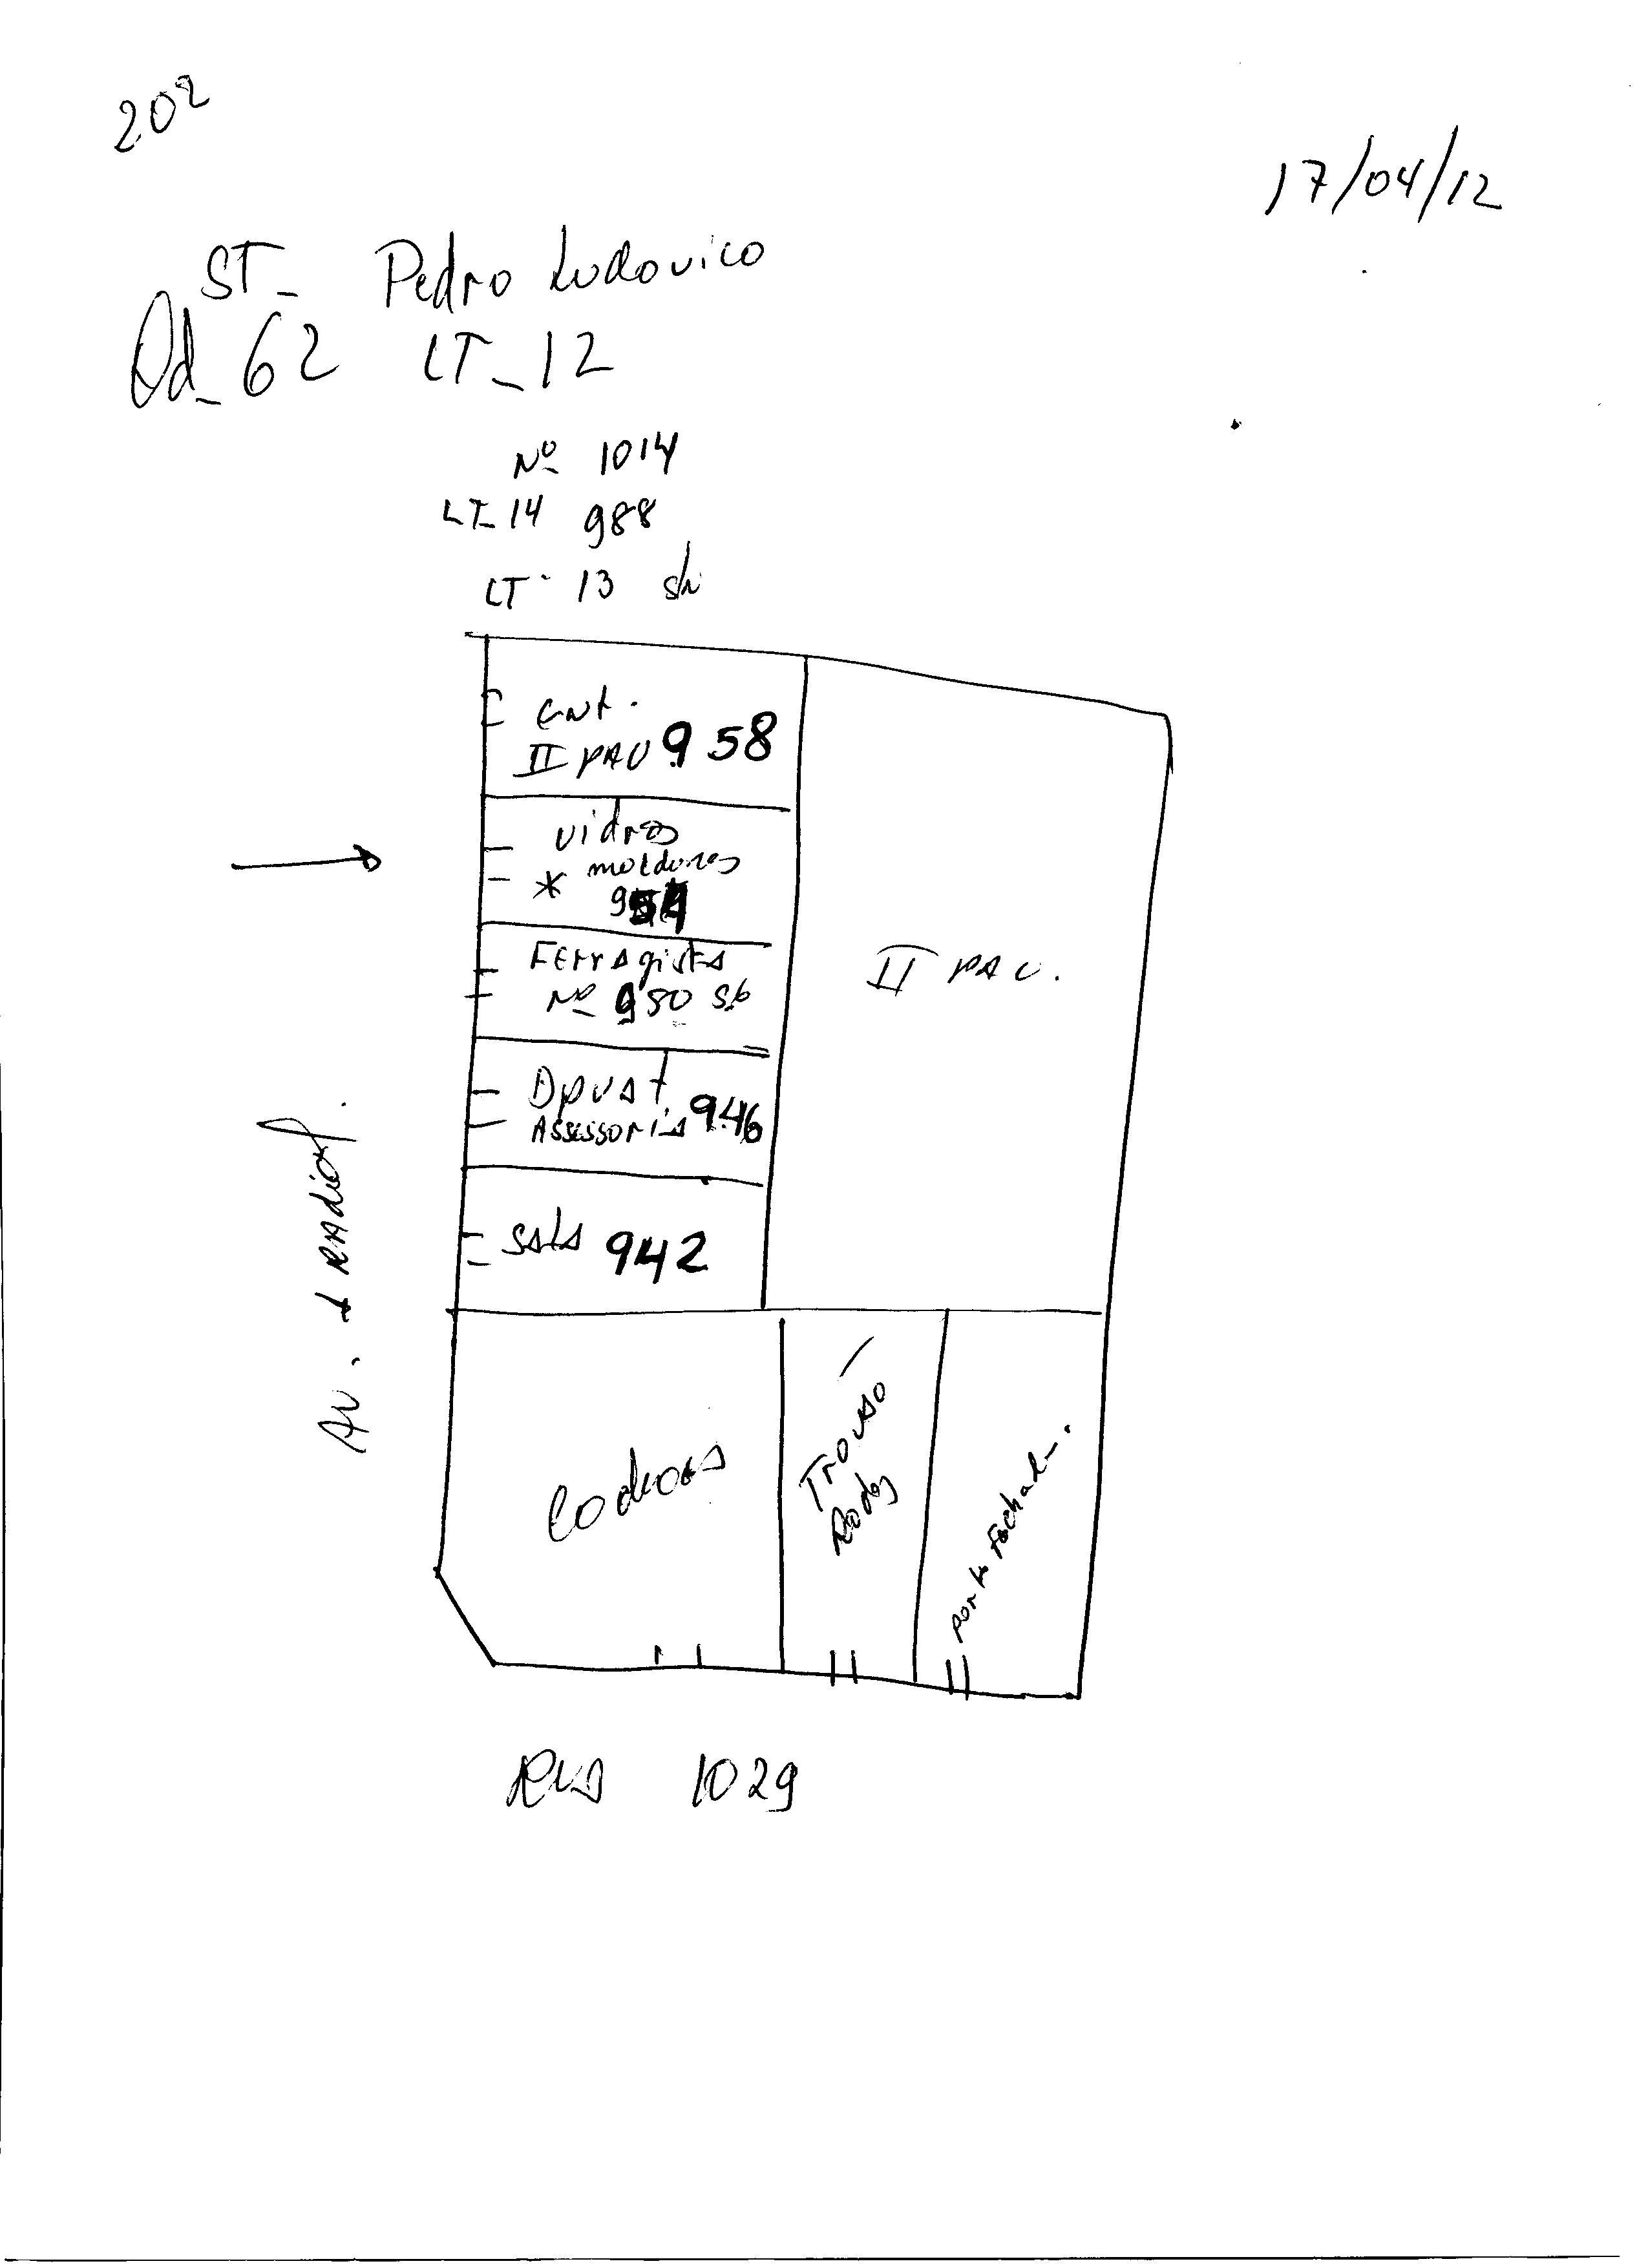 202
17/04/12
ST_ Pedro Ludovico
Qd_62 LT_12
Nº 1014
LT_14 988
LT- 13
ent.
II PAU 958
vidros
* molduras
954
Ferragista
Nº 950
Dpvat
Assessoria 946
sala 942
II PAU.
AV.
Trovão
Rodas
porta Fechad
Rua 1029